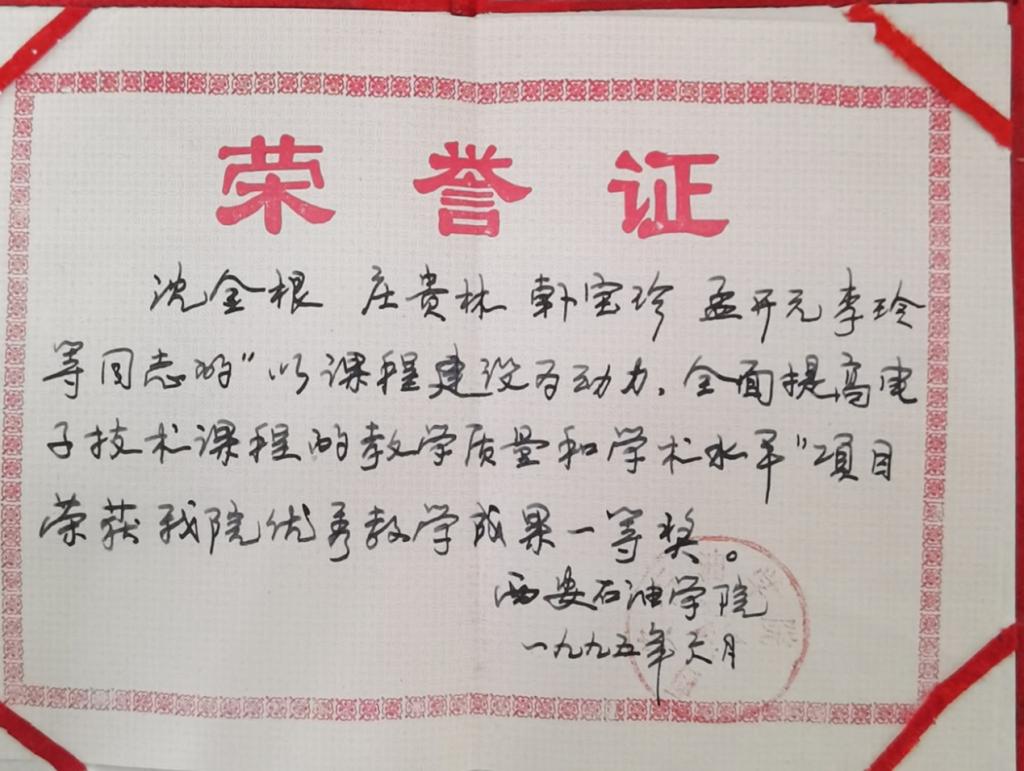 荣誉证
沈金根 庄贵林 韩宝珍 孟开元 李玲
等同志的“以课程建设为动力,全面提高电
子技术课程的教学质量和学术水平”项目
荣获我院优秀教学成果一等奖。
西安石油学院
一九九五年六月